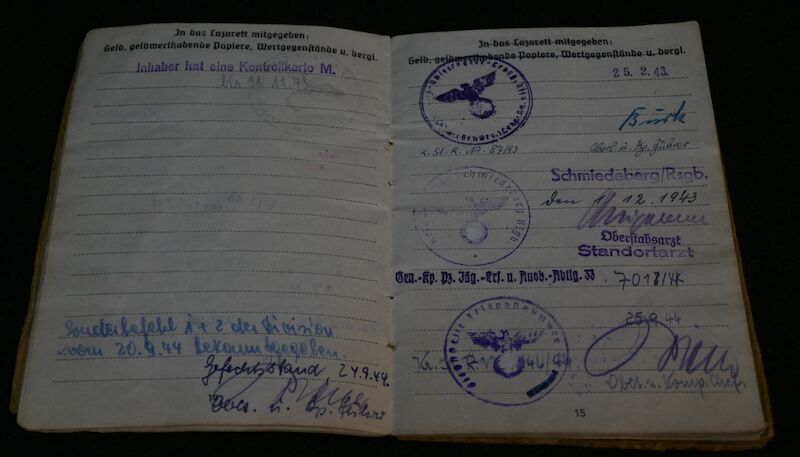 In das Lazarett mitgegeben:
Geld, geldwerthabende Papiere, Wertgegenstände u. dergl.
Inhaber hat eine Kontrollkarte M.
Den 31.12.43
Sonderbefehl 1 + 2 der Division
vom 20.9.44 bekanntgegeben
Gefechtsstand, 24.9.44.
Ober. u. Kp. Führer
In das Lazarett mitgegeben:
Geld, geldwerthabende Papiere, Wertgegenstände u. dergl.
25.2.43.
Burk
K. St. R. Nr. 87/43
Oberl. u. Kp. Führer
Schmiedeberg/Rsgb.
Schmiedeberg Rsgb
den 1.12.1943
Oberstabsarzt
Standortarzt
Gen.-Kp. Pz. Jäg.-Ers. u. Ausb.-Abtlg. 33
7018/44
25.9.44
Dienststelle Feldpostnummer
46/44
Ober. u. Komp. Chef
15